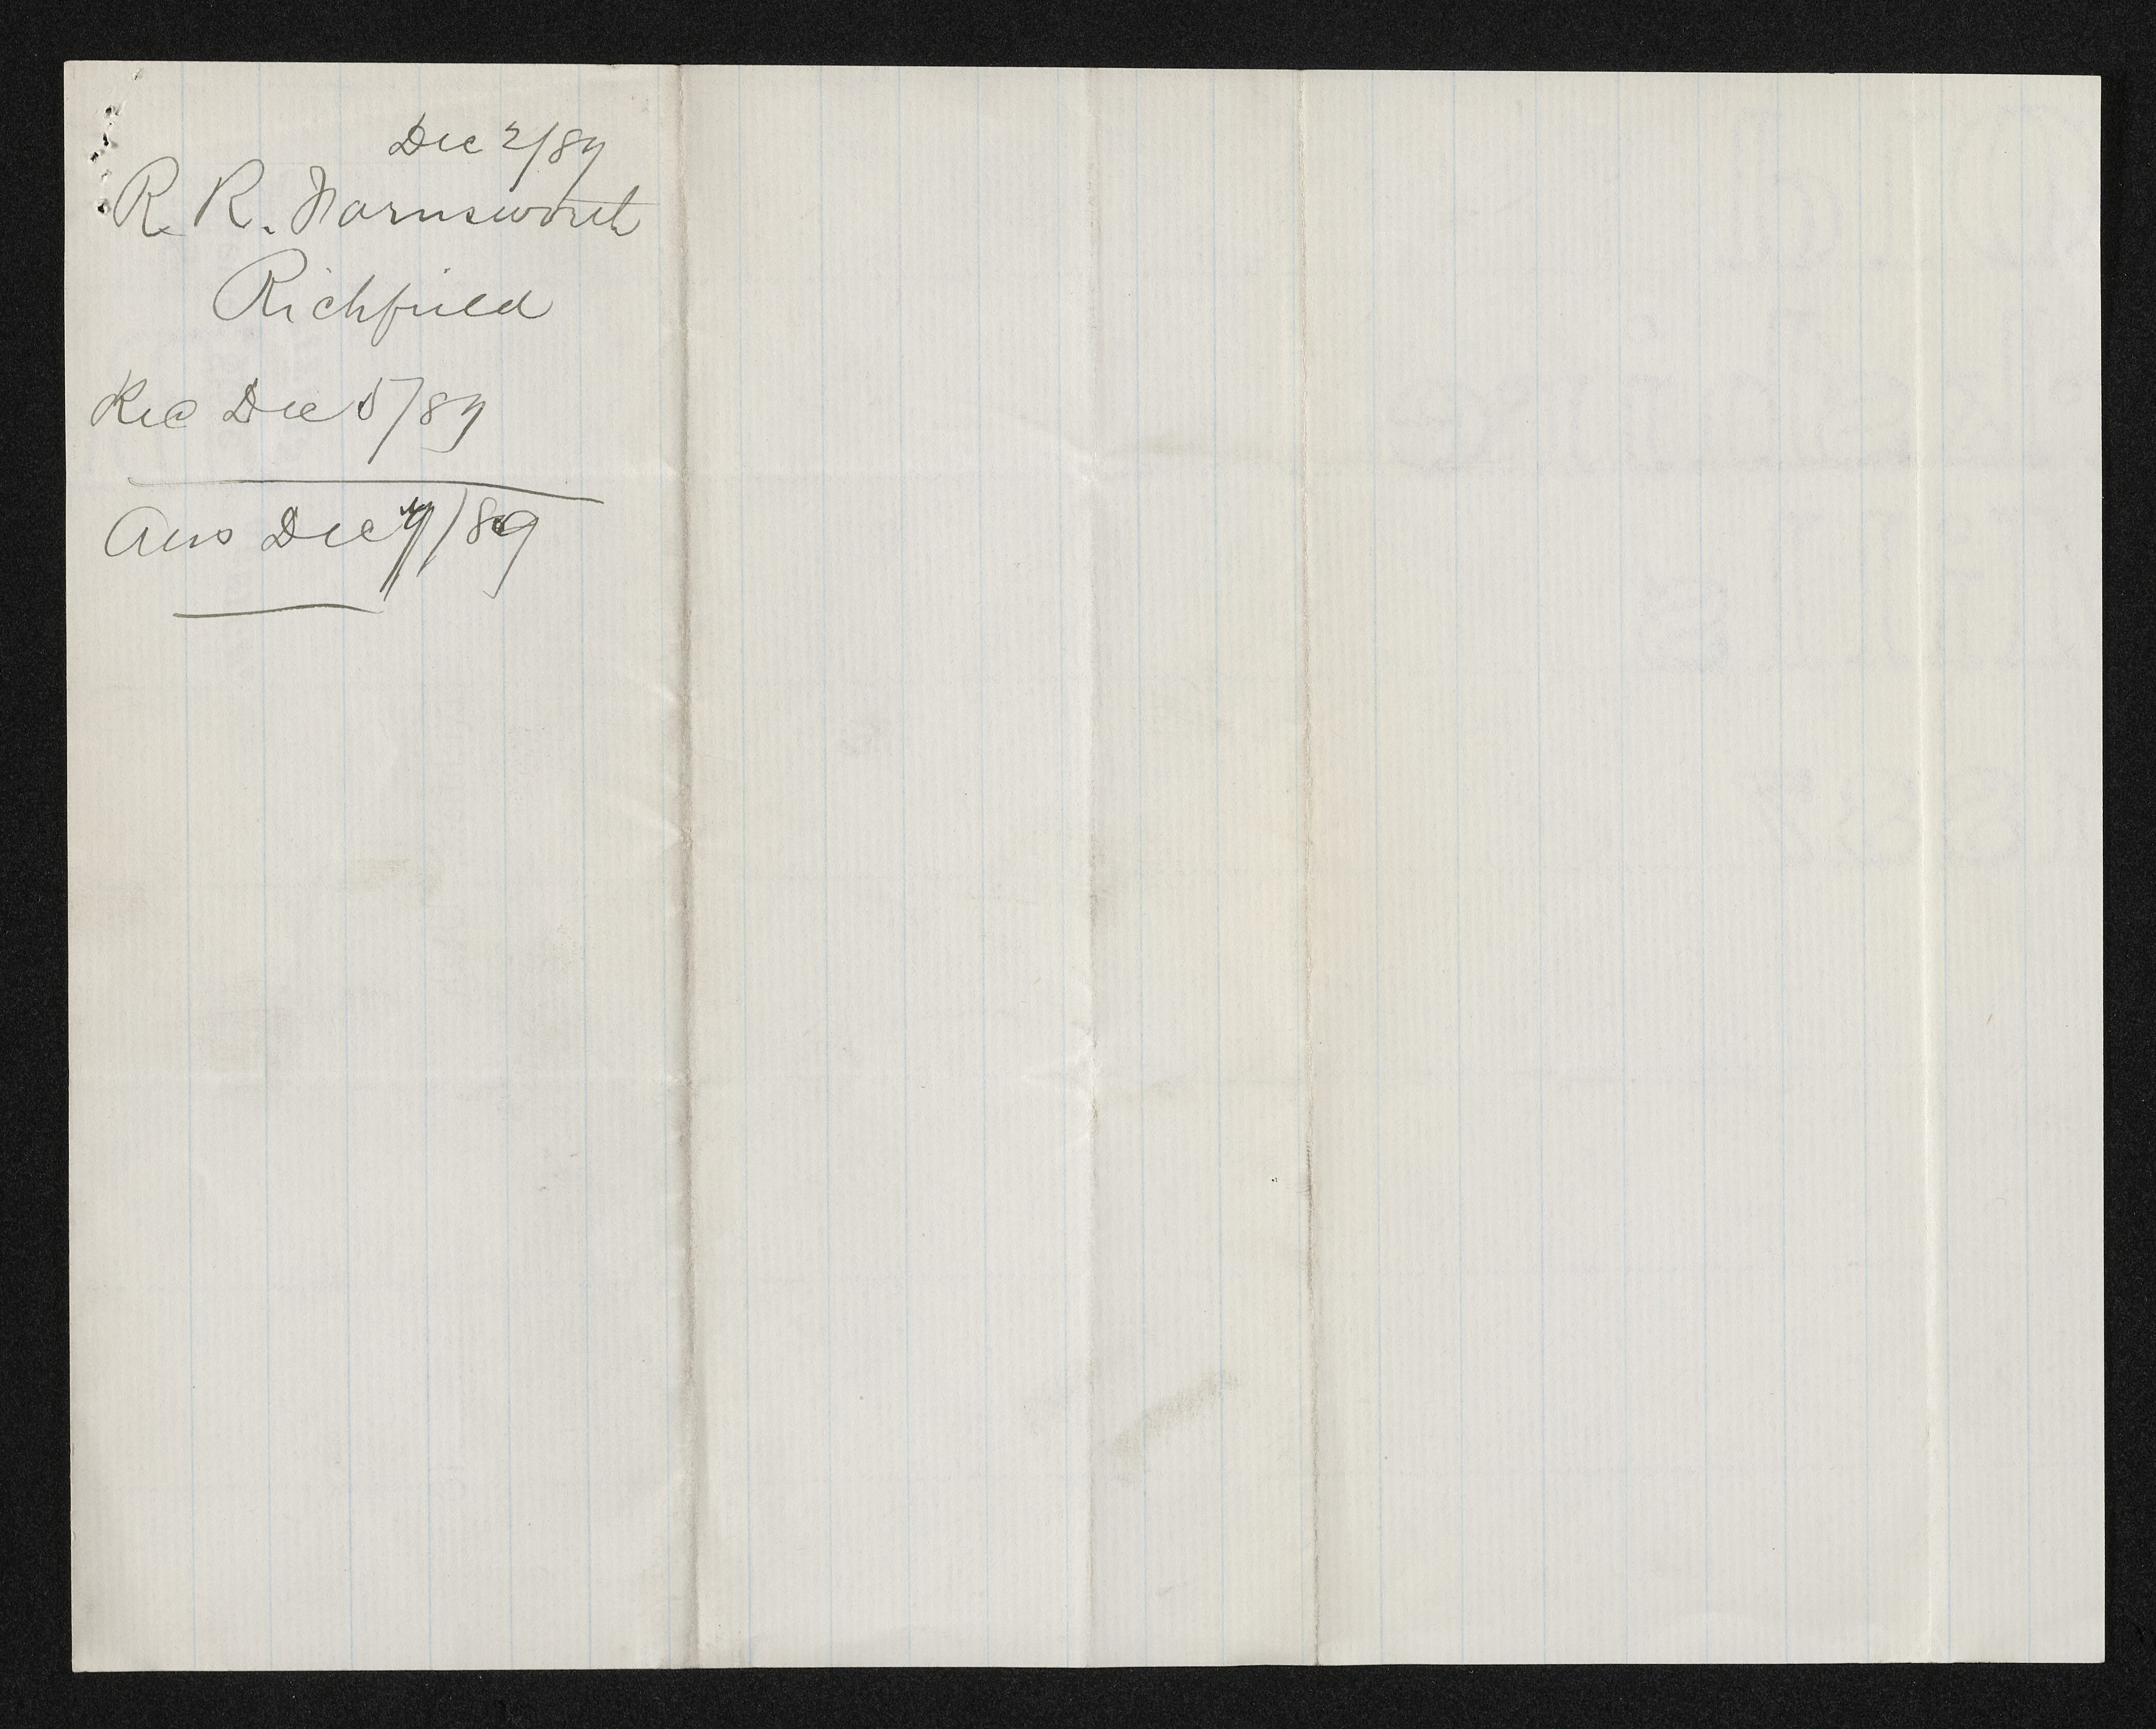 Dec 2/89
R. R. Farnsworth
Richfield
Rec Dec 5/89
Ans Dec 9/89